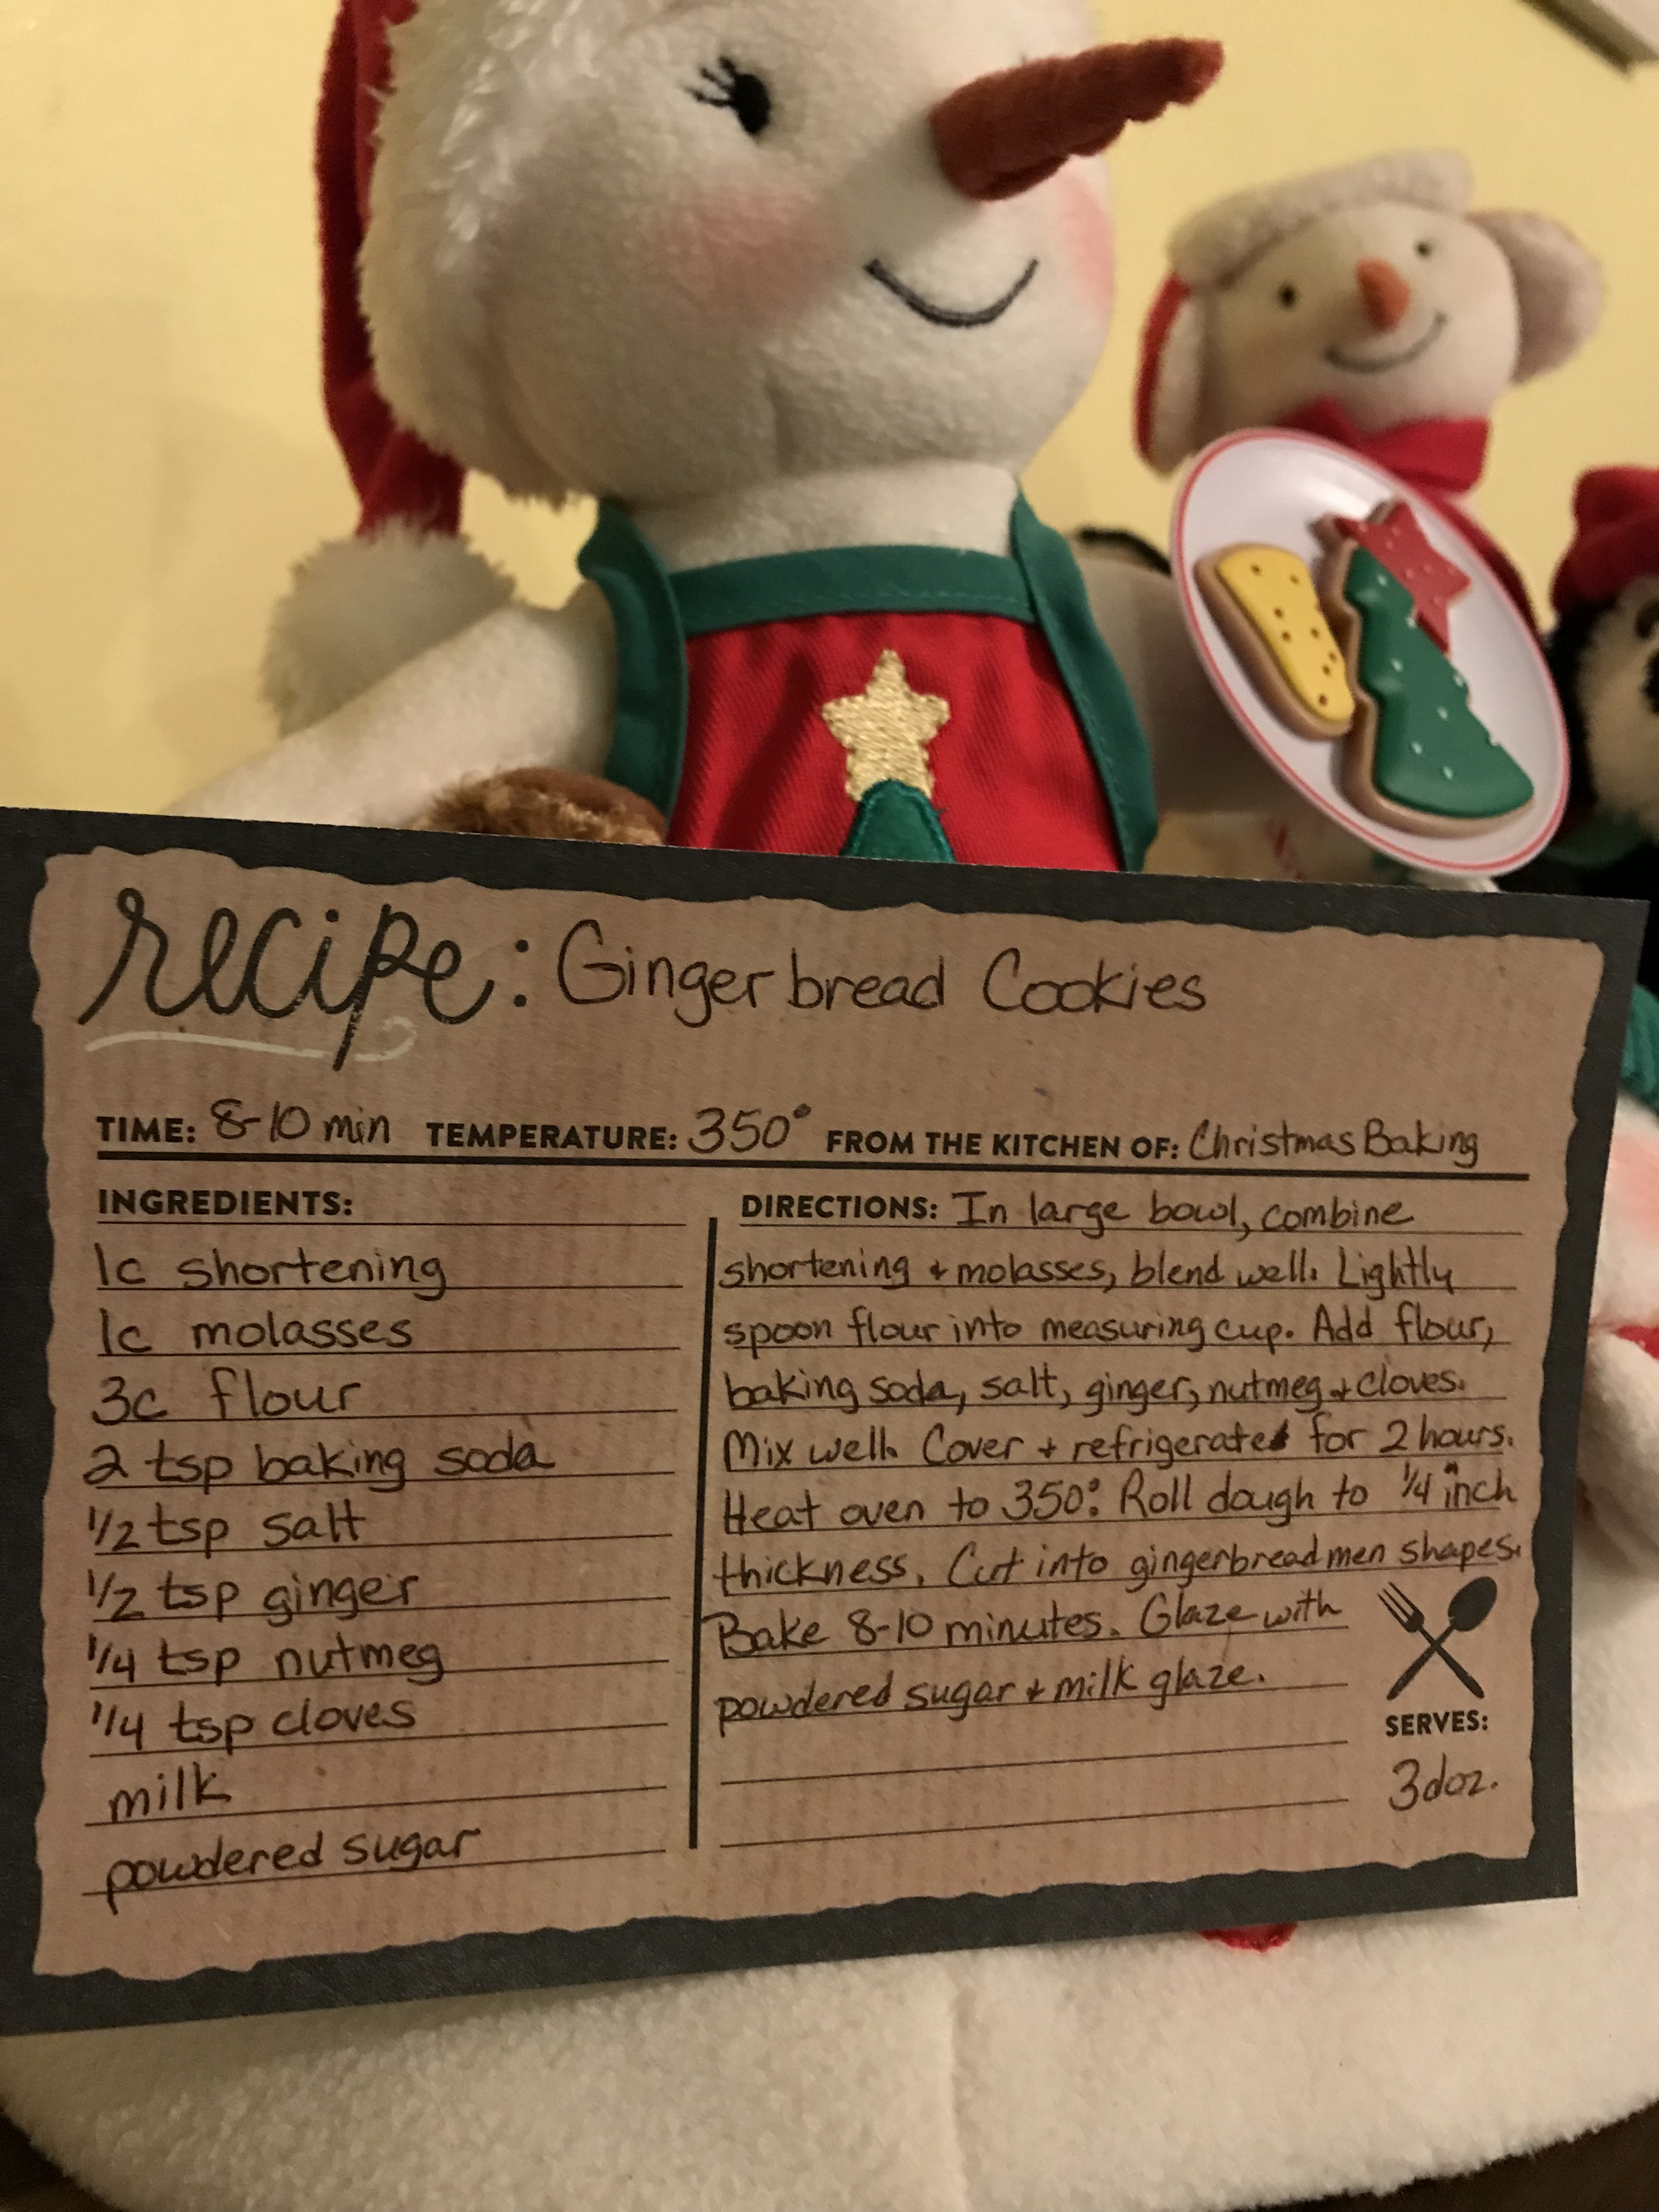 recipe: Gingerbread Cookies
TIME: 8-10 min TEMPERATURE: 350° FROM THE KITCHEN OF: Christmas Baking
INGREDIENTS:
1c shortening
1c molasses
3c flour
2 tsp baking soda
1/2 tsp salt
1/2 tsp ginger
1/4 tsp nutmeg
1/4 tsp cloves
milk
powdered sugar
DIRECTIONS: In large bowl, combine
shortening + molasses, blend well. Lightly
spoon flour into measuring cup. Add flour,
baking soda, salt, ginger, nutmeg + cloves.
Mix well. Cover + refrigerate for 2 hours.
Heat oven to 350°. Roll dough to 1/4 inch
thickness. Cut into gingerbread men shapes.
Bake 8-10 minutes. Glaze with
powdered sugar + milk glaze.
SERVES:
3doz.